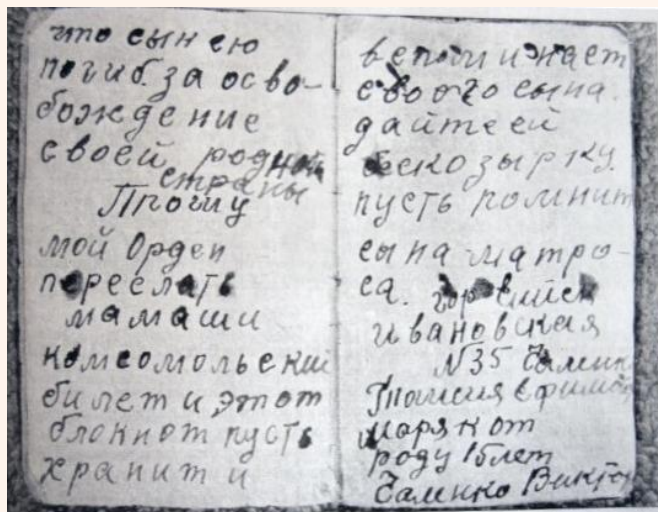 что сын ею
погиб. за осво-
бождение
своей родной
страны
Прошу
мой Орден
переслать
мамаши
комсомольский
билет и этот
блокнот пусть
хранит и
вспоминает
своого сына.
дайте ей
бескозырку.
пусть помнит
сына-матро-
са. гор
ивановская
№35 Чаленко
моряк от
роду 15 лет
Чаленко Виктор